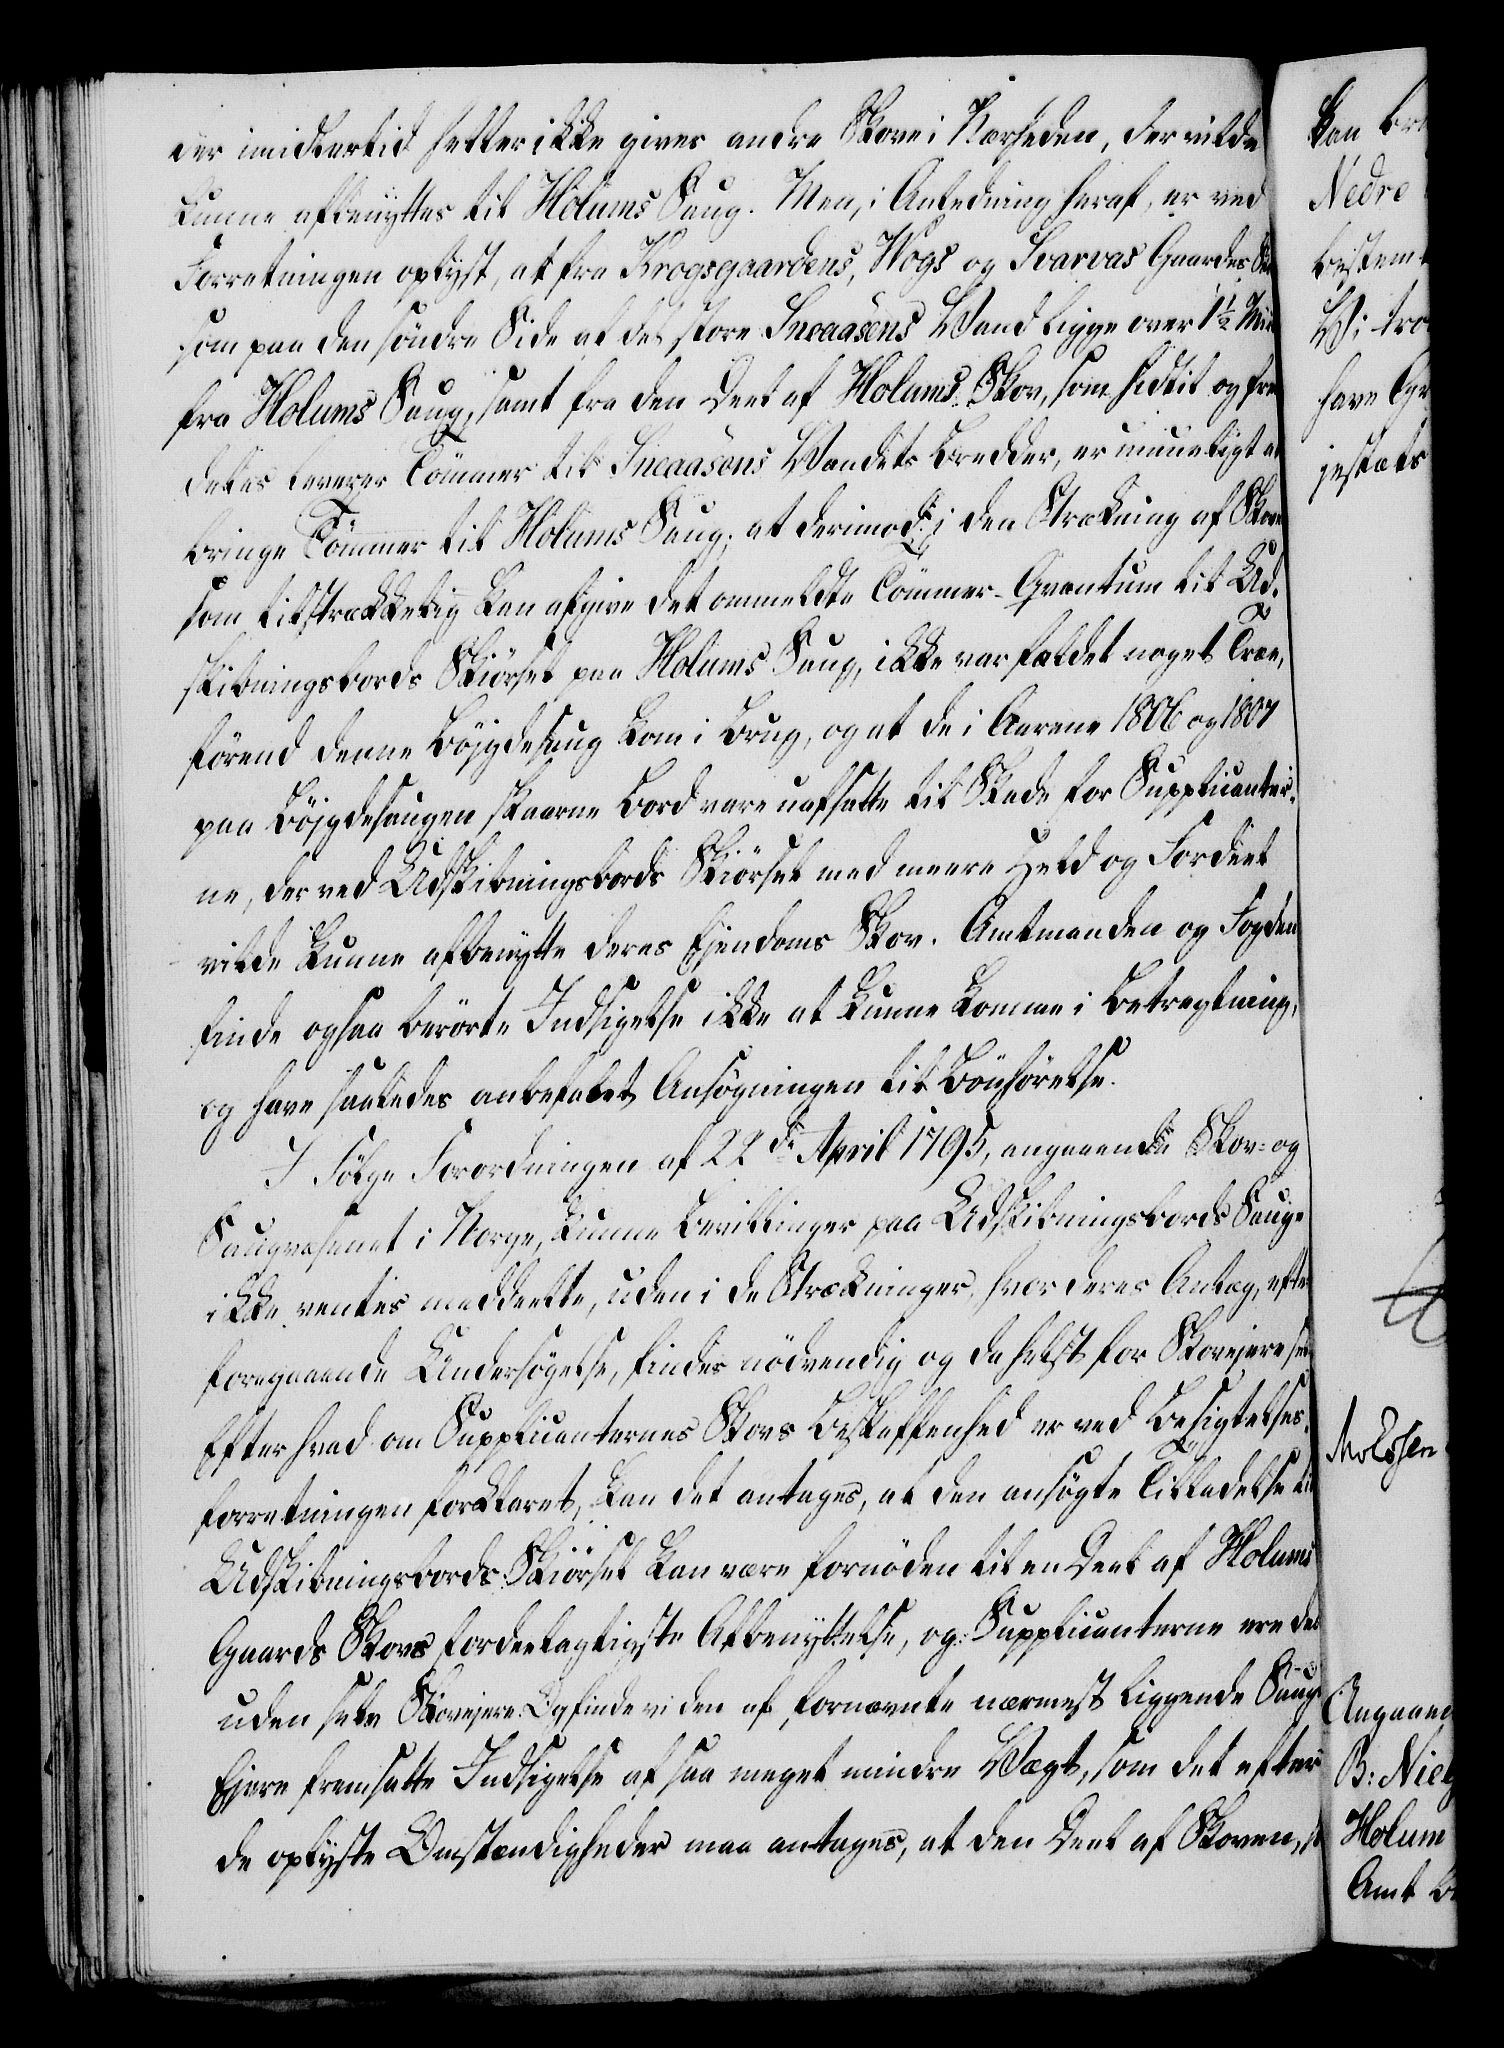 der imidlertid heller ikke gives andre Skove i Nærheden, der vilde
kunne afbenyttes til Holums Saug. Men, i Anledning heraf, er ved
Forretningen oplyst, at fra Krogsgaardens, Wogs og Svarvas Gaardes
som paa den söndre Side af det store Sneaasens Vand ligge over 1½ Miil
fra Holums Saug, samt fra den Deel af Holums Skov, som hidtil og frem
deles leverer Tömmer til Sneaasens Vandets Bredder, er umueligt at
bringe Tömmer til Holums Saug; at derimod i den Strækning af Skoven
som tilstrækkelig kan afgive det ommeldte Tömmer-Qvantum til Ud-
skibningsbords Skiörsel paa Holums Saug, ikke var fældet noget Træe,
förend denne Böjgdesaug kom i Brug, og at de i Aarene 1806 og 1807
paa Böjgdesaugen skaarne Bord vare uafsatte til Skade for Supplicanter-
ne, der ved Udskibningsbords Skiörsel med meere Held og Fordeel
vilde kunne afbenytte deres Ejendoms Skov. Amtmanden og Fogden
finde ogsaa berörte Indsigelse ikke at kunne komme i Betragtning,
og have saaledes anbefalet Ansögningen til Bönhörelse.
I Fölge Forordningen af 22de April 1795, angaaende Skov- og
Saugvæsenet i Norge, kunne Bevillinger paa Udskibningsbords Sauge
ikke ventes meddeelte, uden i de Strækninger, hvor deres Anlæg, efter
foregaaende Undersögelse, findes nödvendig og da helst for Skovejere selv
Efter hvad om Supplicanternes Skovs Beskaffenhed er ved Besigtelses-
forretningen forklaret, kan det antages, at den ansögte Tilladelse til
Udskibningsbords Skiörsel kan være fornöden til en Deel af Holums
Gaards Skovs fordeelagtigste Afbenyttelse, og Supplicanterne ere des
uden selv Skovejere. Og finde vi den af fornævnte nærmest liggende Saug-
Ejere fremsatte Indsigelse af saa meget mindre Vægt, som det efter
de oplyste Omstændigheder maa antages, at den Deel af Skoven,
kan
Nedre
bestem
Vi tro
have
jestæts
Angaaen
B: Niel
Holum
Amt